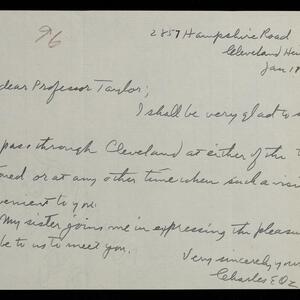 96
2857 Hampshire Road
Cleveland Hei
Jan 18
dear Professor Taylor;
I shall be very glad to s
pass through Cleveland at either of the t
oned or at any other time when such a visi
venient to you.
My sister joins me in expressing the pleasu
be to us to meet you.
Very sincerely your
Charles E O